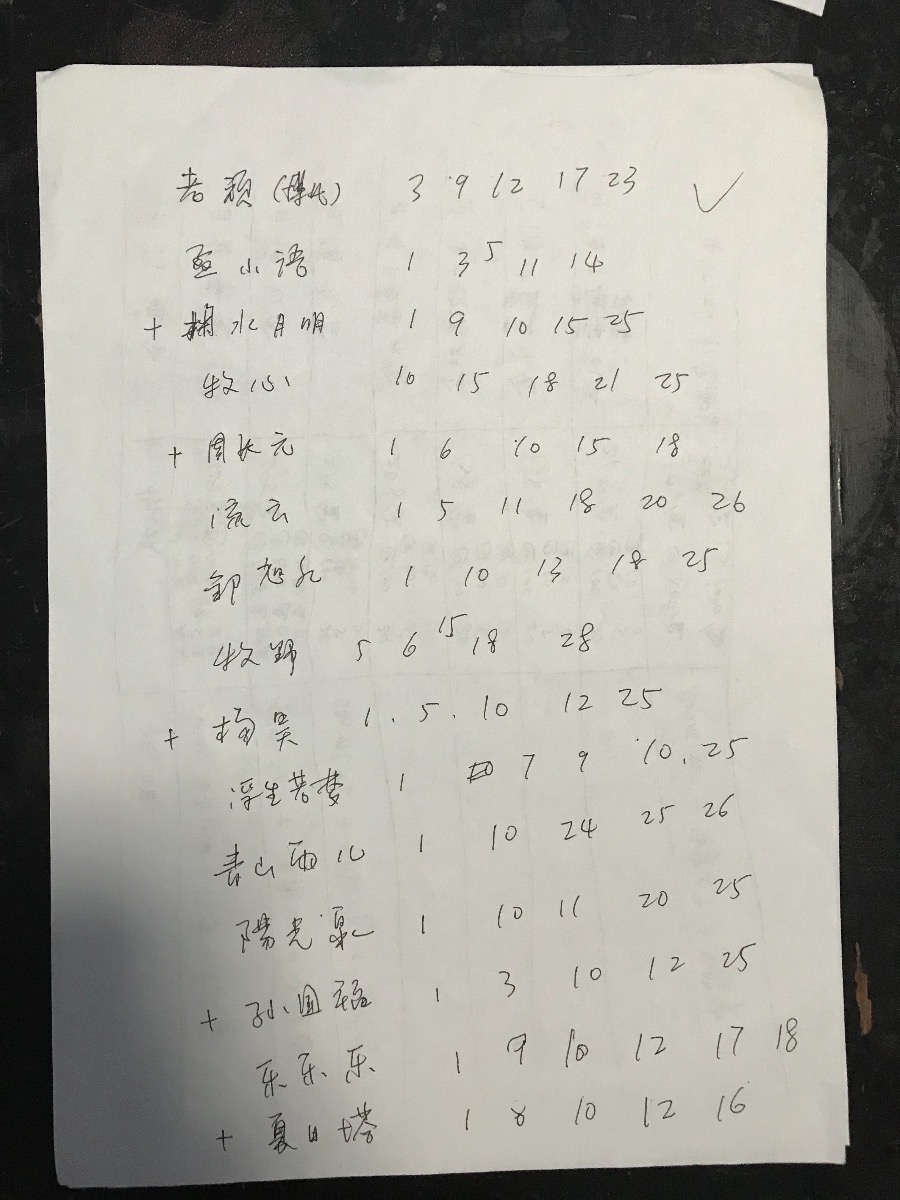 老颜 3 9 12 17 23 ✓
小语 1 3 5 11 14
+ 掬水月明 1 9 10 15 25
牧心 10 15 18 21 25
+ 周状元 1 6 10 15 18
流云 1 5 11 18 20 26
1 10 13 18 25
牧野 5 6 15 18 28
+ 杨昊 1. 5. 10 12 25
浮生若梦 1 7 9 10. 25
青山雨儿 1 10 24 25 26
陽光 1 10 11 20 25
+ 孙圆 1 3 10 12 25
乐乐乐 1 9 10 12 17 18
+ 夏日塔 1 8 10 12 16